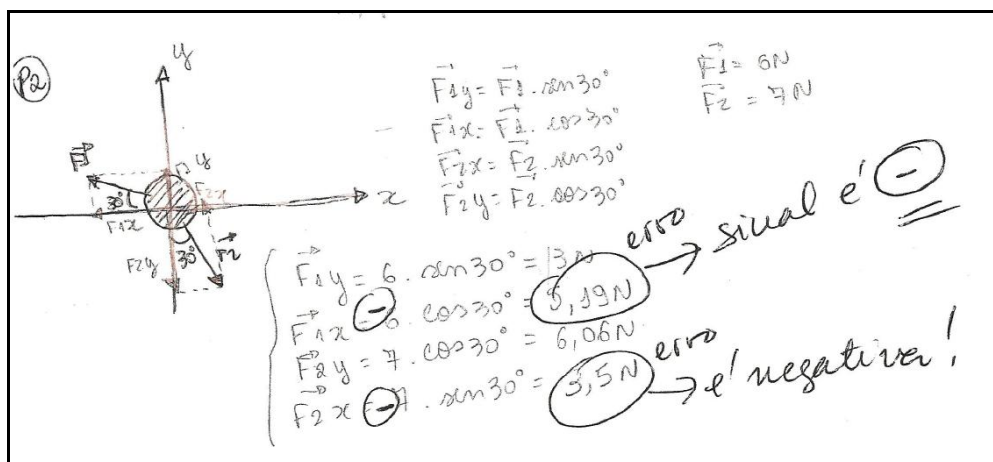 P2
y
x
F1
30°
F1x
y
F2x
F2y
30°
F2
F1y = F1 . sen30°
F1x = F1 . cos30°
F2x = F2 . sen30°
F2y = F2 . cos30°
F1 = 6N
F2 = 7N
F1y = 6 . sen30° = 3N
F1x = - 6 . cos30° = 5,19N
erro → sinal é -
F2y = 7 . cos30° = 6,06N
F2x = - 7 . sen30° = 3,5N
erro → é negativa!